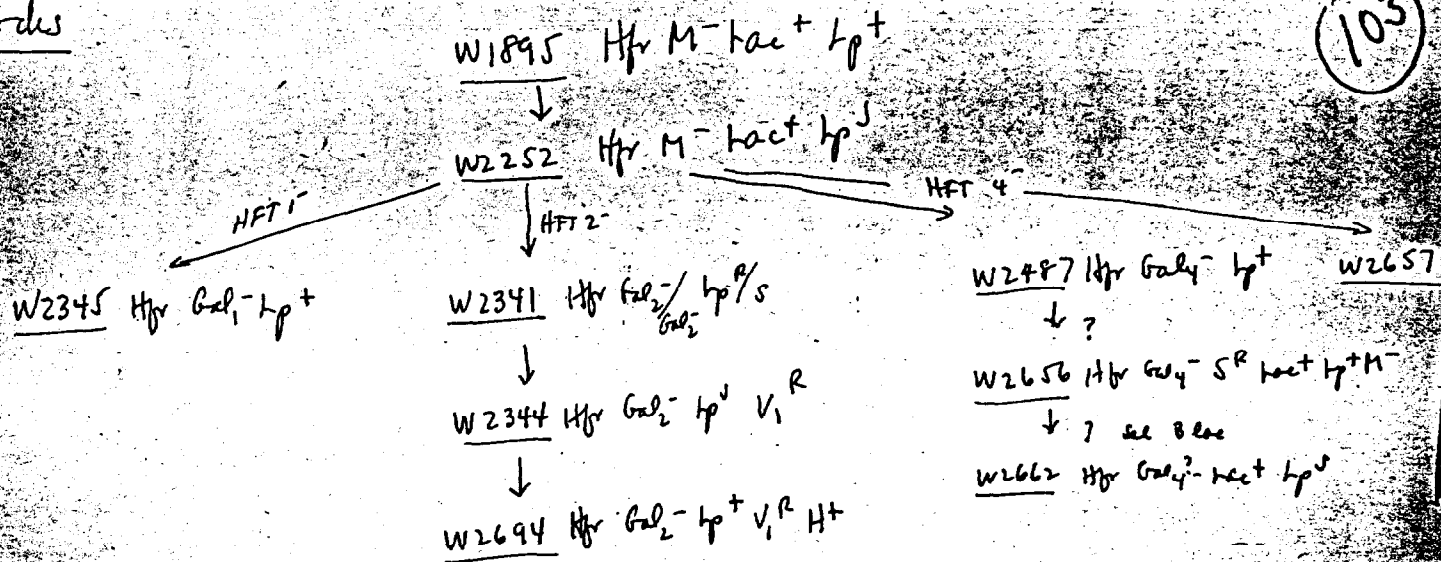 103
W1895 Hfr M⁻ Lac⁺ Lp⁺
↓
W2252 Hfr M⁻ Lac⁺ Lpˢ
HFT 1⁻
HFT 2⁻
HFT 4⁻
W2345 Hfr Gal₁⁻ Lp⁺
W2341 Hfr Gal₂⁻/Gal₂⁻ Lpᴿ/s
↓
W2344 Hfr Gal₂⁻ Lpˢ V₁ᴿ
↓
W2694 Hfr Gal₂⁻ Lp⁺ V₁ᴿ H+
W2487 Hfr Gal₄⁻ Lp⁺
↓ ?
W2656 Hfr Gal₄⁻ Sᴿ Lac⁺ Lp⁺ M⁻
↓ ?
W2662 Hfr Gal₄?⁻ Lac⁺ Lpˢ
W2657